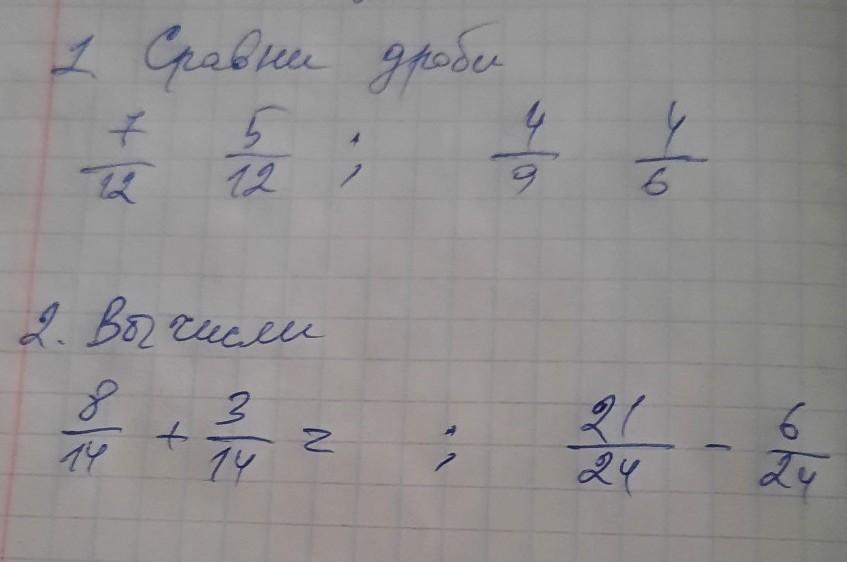 1 Сравни дроби
7/12 5/12 ; 4/9 4/6
2. Вычисли
8/14 + 3/14 = ; 21/24 - 6/24